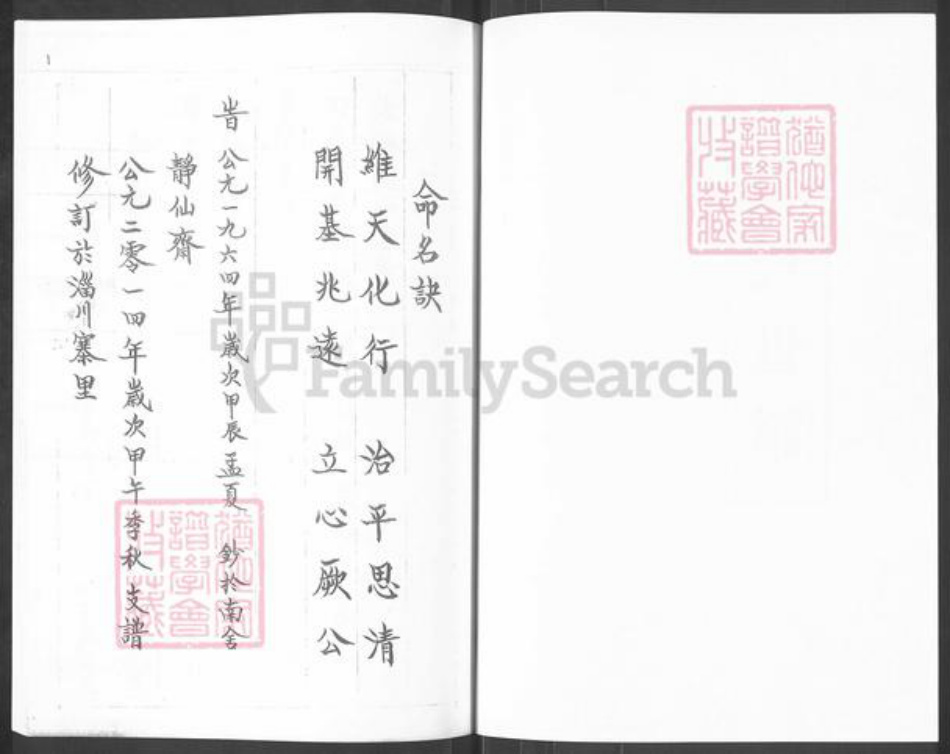 命名訣
維天化行 治平思清
開基兆遠 立心厥公
旹 公元一九六四年歲次甲辰孟夏 鈔於南舍
靜仙齋
公元二零一四年歲次甲午季秋 支譜
修訂於淄川寨里
1
FamilySearch
譜學會
收藏
譜學會
收藏